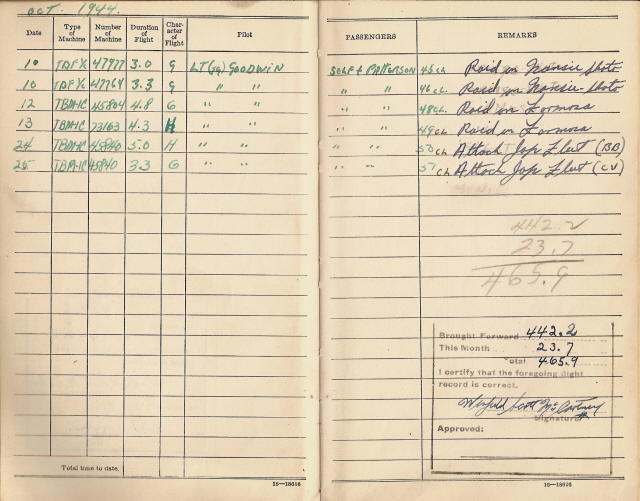 OCT. 1944.
Date Type of Machine Number of Machine Duration of Flight Character of Flight Pilot PASSENGERS REMARKS
10 47977 3.0 G LT(jg) GOODWIN SOLF + PATTERSON 45 CL Raid on Nansei Shoto
10 47764 3.3 G " " " " 46 CL Raid on Nansei-Shoto
12 TBM-1C 45804 4.8 G " " " " 48 CL Raid on Formosa
13 TBM-1C 73163 4.3 H " " " " 49 CL Raid on Formosa
24 TBM-1C 45840 5.0 H " " " " CL Attack Jap Fleet (BB)
25 TBM-1C 45840 3.3 G " " " " CL Attack Jap Fleet (CV)
442.2
23.7
465.9
Brought Forward 442.2
This Month 23.7
Total 465.9
I certify that the foregoing flight
record is correct.
Winfield Scott McCartney
Signature
Approved:
Total time to date.
16—18606 16—18606